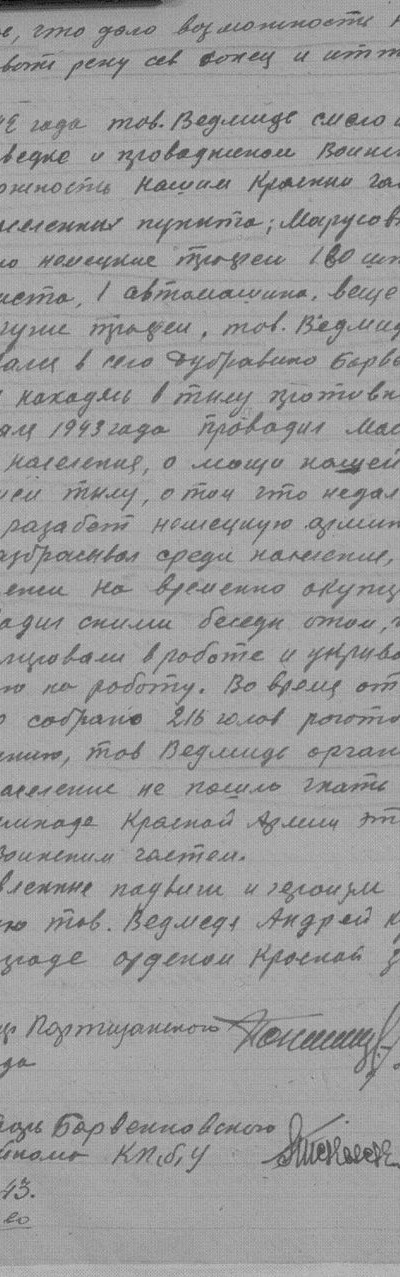 е, что дало возможность н
вать реку сев донец и итт
42 года тов. Ведмидь смело и
ведке и провадником Воинс
ожность нашим Красным час
аселенных пункта; Марусовк
то немецкие трофеи 180 шт
иста, 1 автомашина, веще
ругие трофеи, тов. Ведмид
вался в село Дубравино Барве
находясь в тылу протовни
1943 года провадил мас
населения, о мощи нашей
тылу, о том что недал
разабёт немецкую арми
азбрасывал среди населения,
на временно окупи
адил сними беседы отом,
в работе и укрыва
ю на работу. Во время от
о собрано 216 голов рогото
ению, тов Ведмидь орган
аселение не пошло гнать
команде Красной Армии эт
Воинским частем.
вленные падвиги и героизм
ю тов. Ведмедя Андрей
граде орденом Красной З
Партизанского
да
арь Барвенковского
йкома КП(б)У
43.